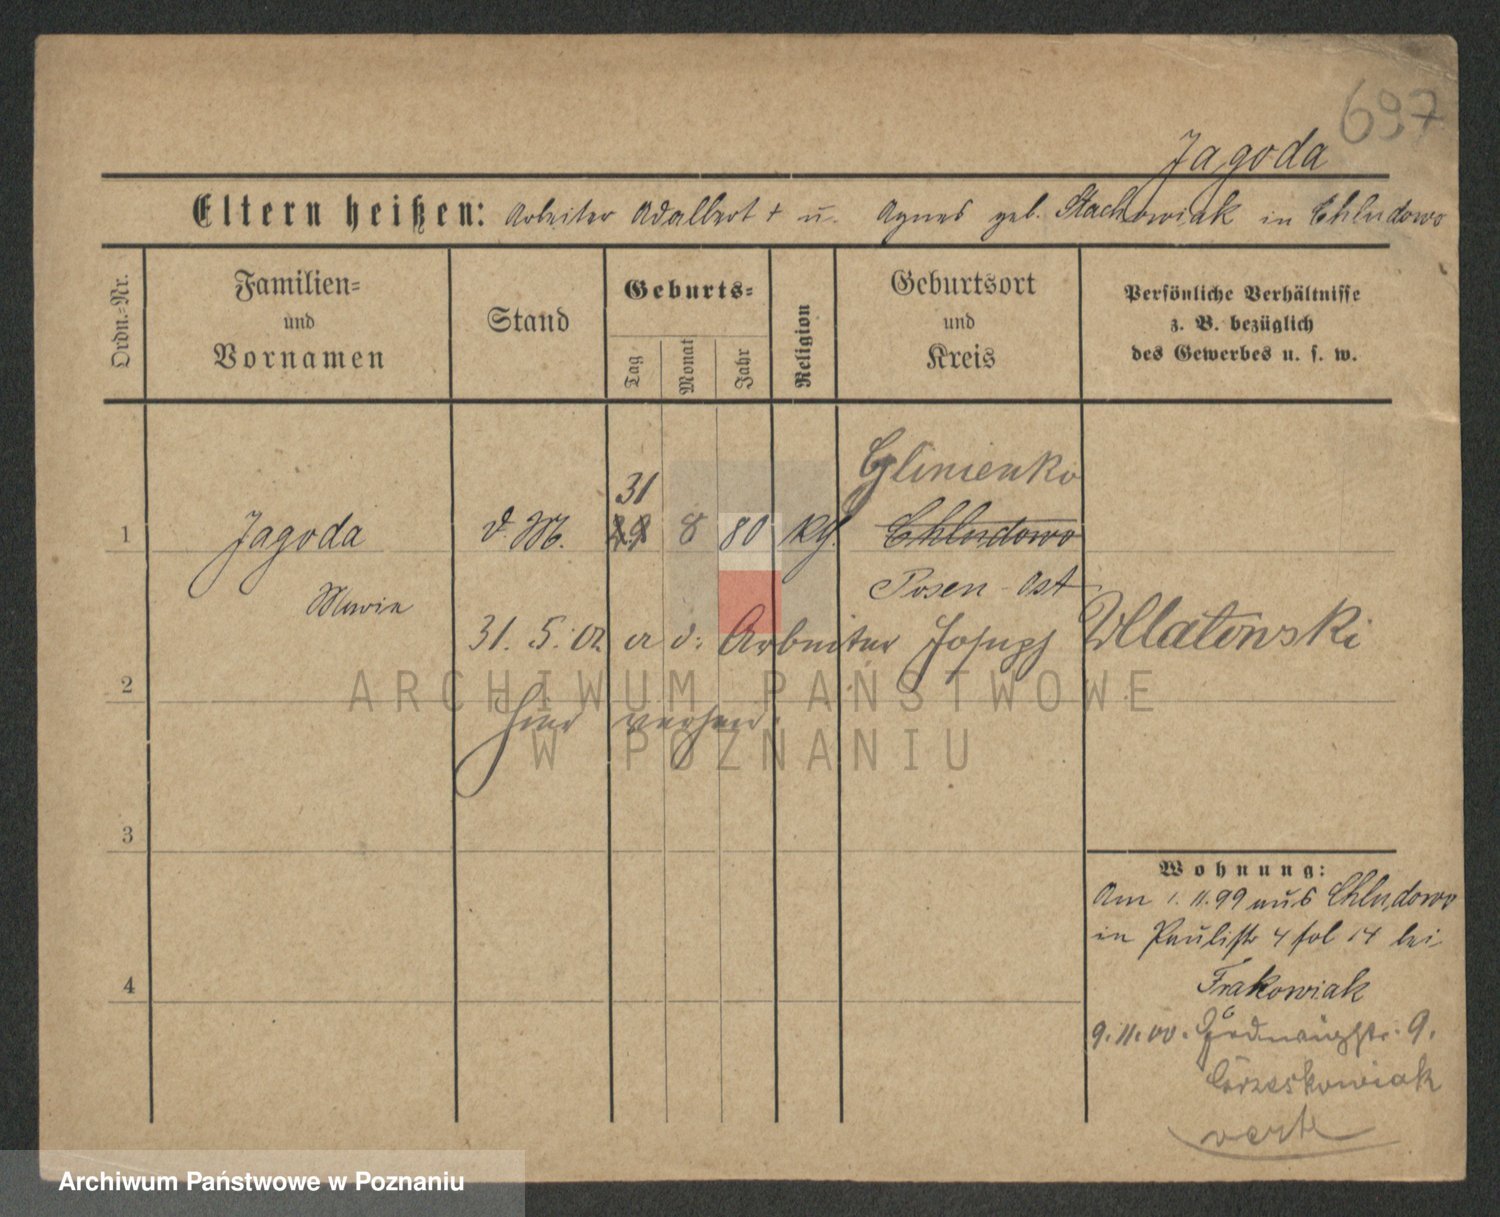 697
Jagoda
Eltern heißen: Arbeiter Adalbert + u. Agnes geb. Stachowiak in Chludowo
Ordn.-Nr.
Familien- und Vornamen
Stand
Geburts-
Tag
Monat
Jahr
Religion
Geburtsort und Kreis
Persönliche Verhältnisse z. B. bezüglich des Gewerbes u. s. w.
31
Glinienko
1 Jagoda d. M. 29 8 80 Kth. Chludowo
Marie
Posen-Ost
31. 5. 02 a d: Arbeiter Joseph Wllatowski
2
hier verheir.
3
4
Wohnung:
Am 1. 11. 99 aus Chludowo
in Paulistr 4 fol 14 bei
Frakowiak
9. 11. 00. 9.
Görzeskowiak
verte
ARCHIWUM PAŃSTWOWE
W POZNANIU
Archiwum Państwowe w Poznaniu